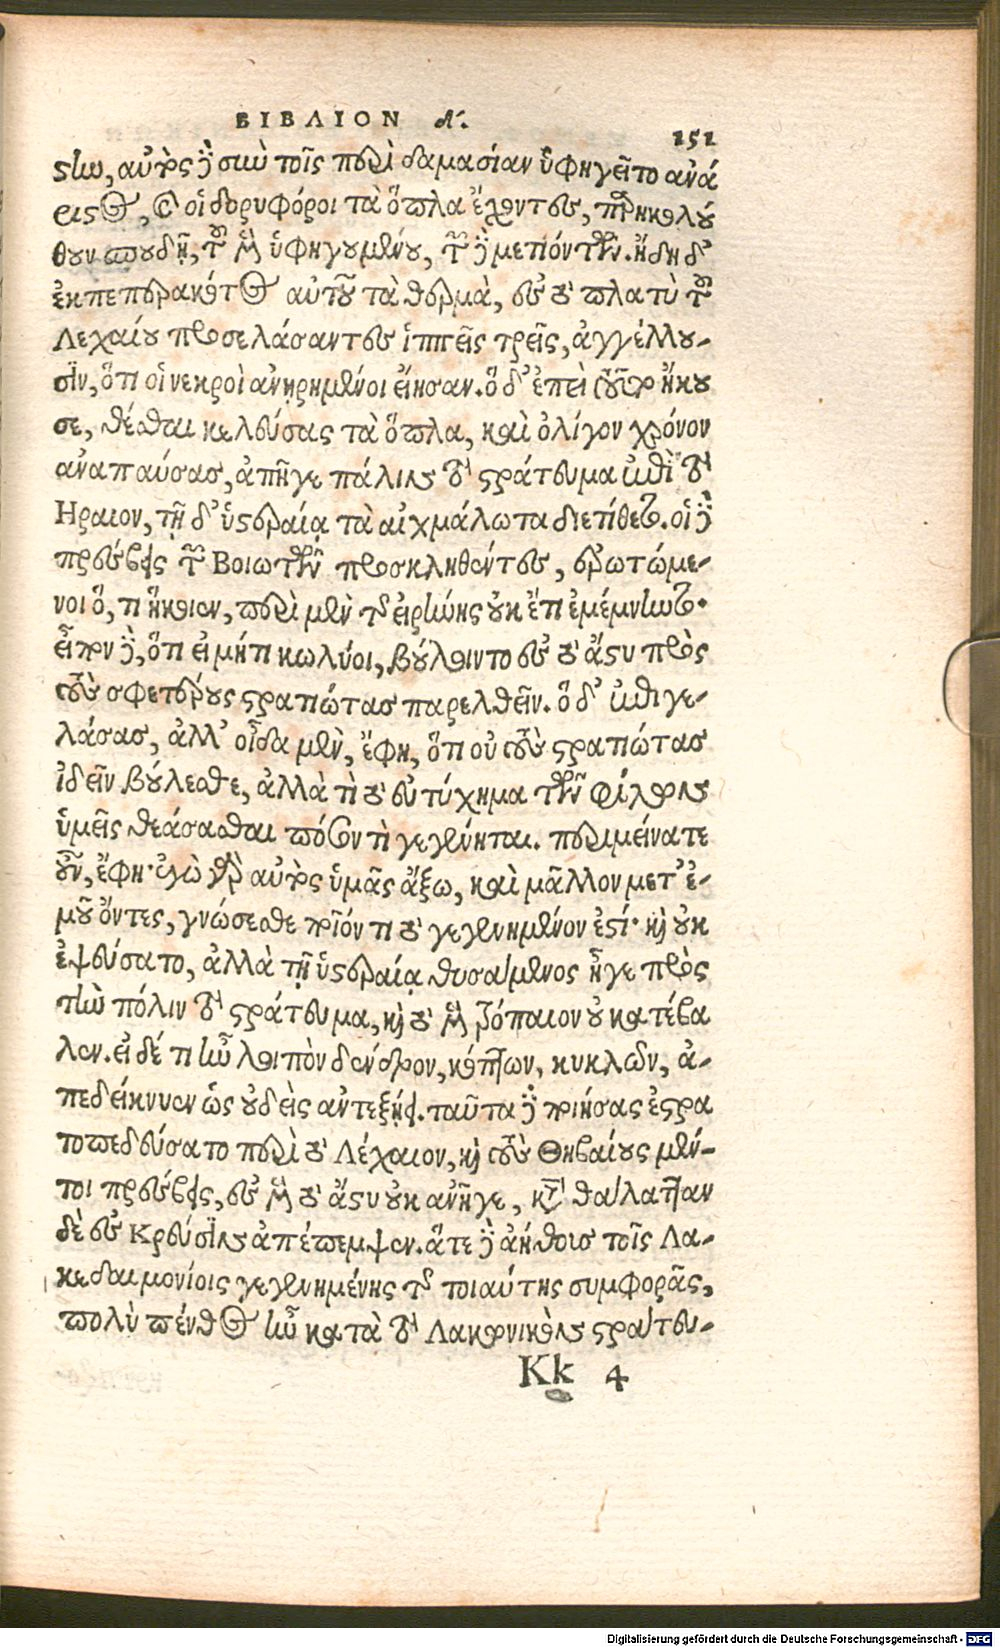 ΒΙΒΛΙΟΝ δ'.
151
στην, αὐτὸς δὲ σιω τοῖς περὶ δαμασίαν ὑφηγεῖτο ανά
ριστος, καὶ οἱ δορυφόροι τὰ ὅπλα ἔχοντες, παρηκολού
θουν σπουδῇ, τοῦ μὲν ὑφηγουμένου, τῶν δὲ μετιόντων. ἤδη δ'
ἐκπεπερακότος αὐτοῦ τὰ θερμὰ, ἐς τὸ πλατὺ τοῦ
Λεχαίου προσελάσαντες ἱππεῖς τρεῖς, ἀγγέλλου-
σιν, ὅτι οἱ νεκροὶ ανῃρημένοι εἴησαν. ὅ δ' ἐπεὶ τοῦτο ἤκου
σε, θέσθαι κελεύσας τὰ ὅπλα, καὶ ὀλίγον χρόνον
αναπαύσας, ἀπῆγε πάλιν τὸ στράτευμα ἐπὶ τὸ
Ηραιον, τῇ δ' ὑστεραίᾳ τὰ αἰχμάλωτα διετίθετο. οἱ δὲ
πρέσβεις τῶν Βοιωτῶν προσκληθέντες, ἐρωτώμε-
νοι ὅ, τι ἥκοιεν, περὶ μὲν τῆς εἰρήνης οὐκ ἔτι ἐμέμνηντο·
εἶπον δὲ, ὅτι εἰ μήτι κωλύοι, βούλοιντο ἐς τὸ ἄστυ πρὸς
τοὺς σφετέρους στρατιώτας παρελθεῖν. ὅ δ' ἐπιγε-
λάσας, ἀλλ' οἶδα μὲν, ἔφη, ὅτι οὐ τοὺς στρατιώτας
ἰδεῖν βούλεσθε, ἀλλὰ τὸ εὐτύχημα τῶν φίλων
ὑμεῖς θεάσασθαι πόσον τὶ γεγένηται. περιμείνατε
οὖν, ἔφη· ἐγὼ γὰρ αὐτὸς ὑμᾶς ἄξω, καὶ μᾶλλον μετ' ἐ-
μοῦ ὄντες, γνώσεσθε ποῖόν τι τὸ γεγενημένον ἐστί· καὶ οὐκ
ἐψεύσατο, ἀλλὰ τῇ ὑστεραίᾳ θυσαμενος ἦγε πρὸς
τὴν πόλιν τὸ στράτευμα, καὶ τὸ μὲν τρόπαιον οὐ κατέβα
λεν. εἰ δέ τι ἦν λοιπὸν δένδρον, κόπτων, κυκλῶν, ἀ-
πεδείκνυεν ὡς οὐδεὶς αντεξῄει. ταῦτα δὲ ποιήσας ἐστρα
τοπεδεύσατο περὶ τὸ Λέχαιον, καὶ τοὺς Θηβαίους μέν-
τοι πρέσβεις, ἐς μὲν τὸ ἄστυ οὐκ ανῆγε, κατὰ θαλατταν
δὲ ἐς Κρεύσιν ἀπέπεμψεν. ἅτε δὲ ἀήθους τοῖς Λα-
κεδαιμονίοις γεγενημένης τῆς τοιαύτης συμφορᾶς,
πολὺ πένθος ἦν κατὰ τὸ Λακωνικὸν στράτευ-
Kk 4
Digitalisierung gefördert durch die Deutsche Forschungsgemeinschaft - DFG